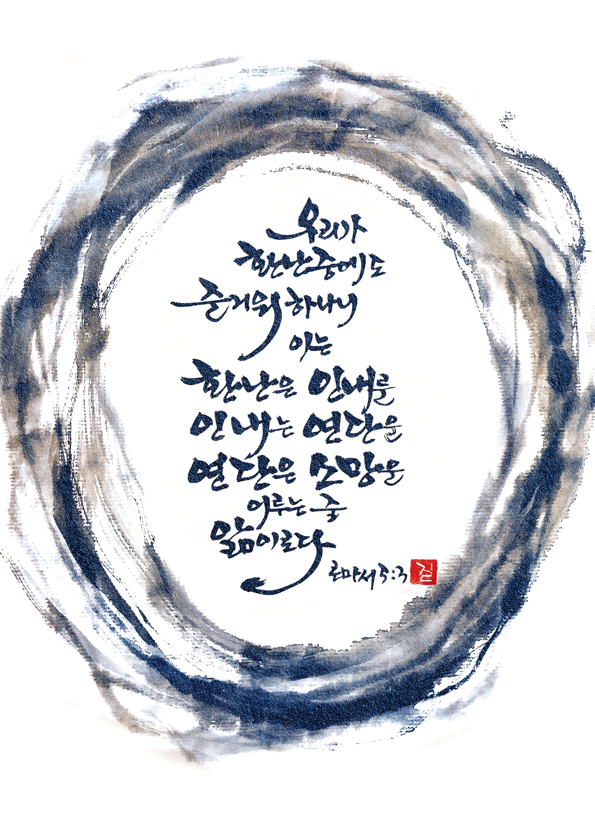 우리가
환난 중에도
즐거워 하나니
이는
환난은 인내를
인내는 연단을
연단은 소망을
이루는 줄
앎이로다
로마서 5:3 길